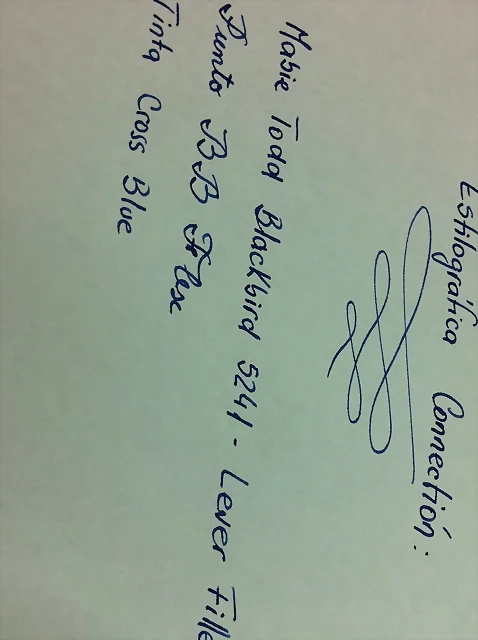 Estilográfica Connectión:
Mabie Todd Blackbird 5241 - Lever Fille
Punto BB Flex
Tinta Cross Blue